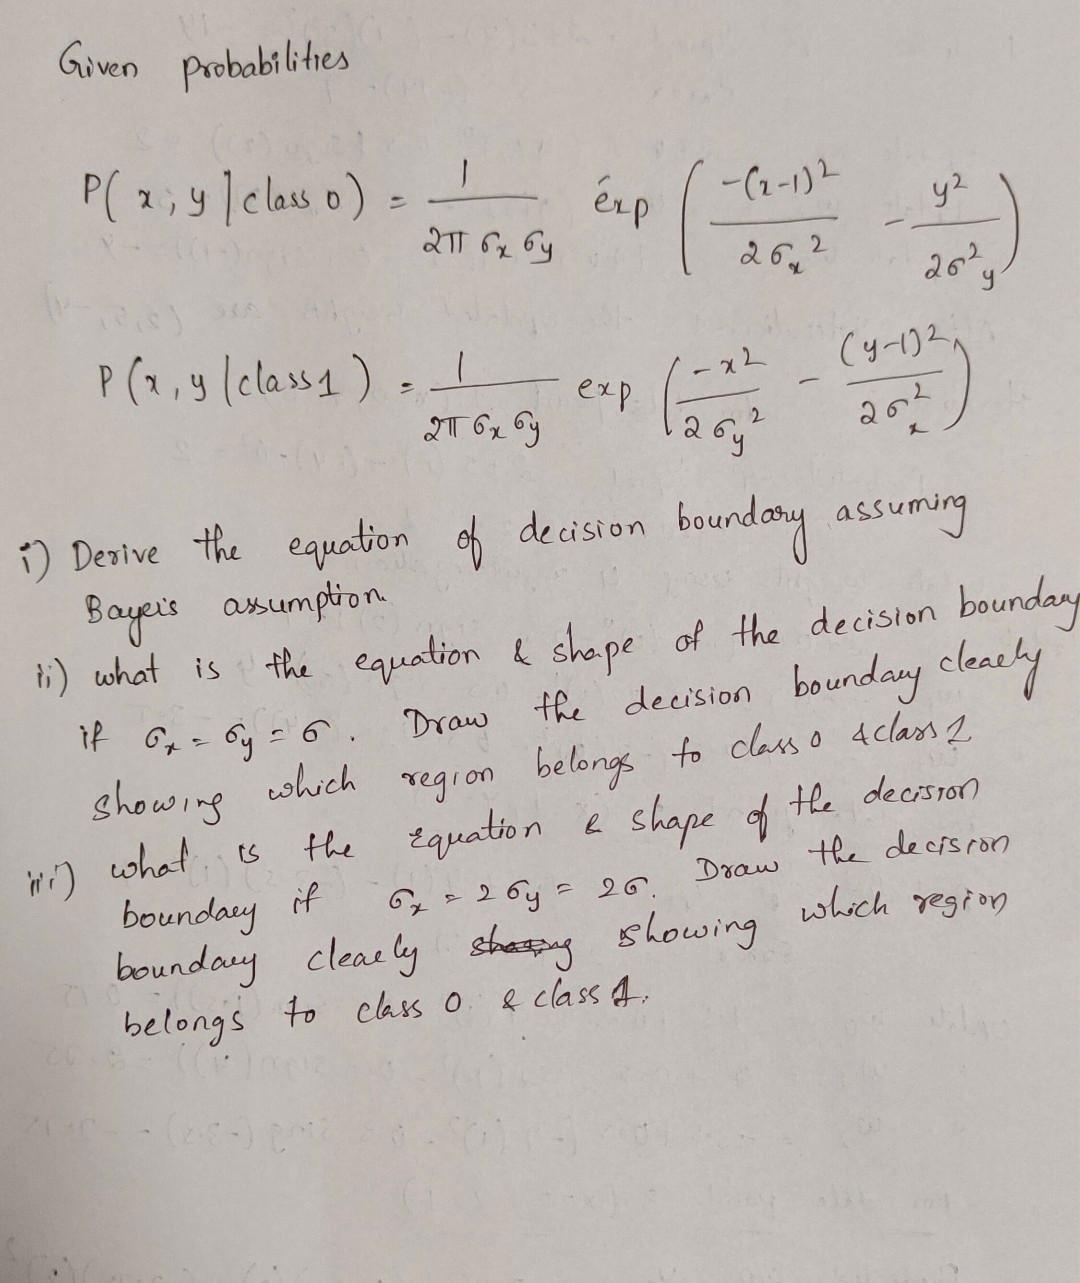 Given probabilities
P( x, y | class 0) = 1 / (2π σx σy) exp ( -(x-1)² / 2σx² - y² / 2σ²y )
P (x, y | class 1 ) = 1 / (2π σx σy) exp ( -x² / 2σy² - (y-1)² / 2σx² )
i) Derive the equation of decision boundary assuming
Bayer's assumption.
ii) what is the equation & shape of the decision boundary
if σx = σy = σ . Draw the decision boundary clearly
showing which region belongs to class 0 & class 1
iii) what is the equation & shape of the decision
boundary if σx = 2σy = 2σ. Draw the decision
boundary clearly showing which region
belongs to class 0 & class 1.